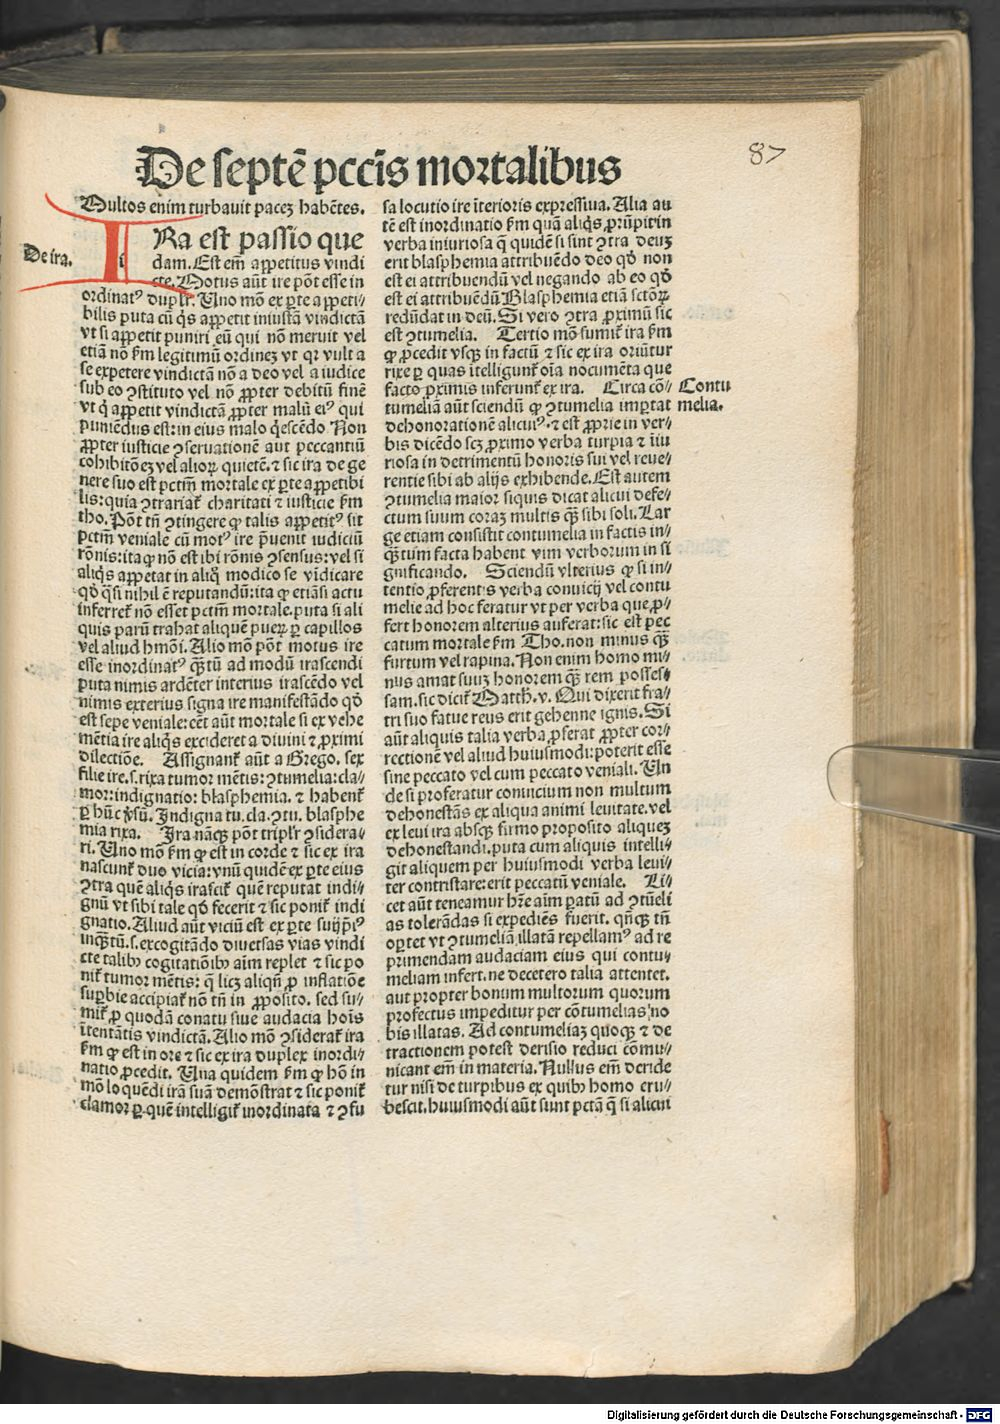 De septē pccīs mortalibus
87
Multos enim turbauit paceʒ habētes.
De ira.
IRa est passio que
dam. Est em̄ appetitus vindi
cte. Motus aūt ire pōt esse in
ordinatꝰ duplr̄. Uno mō ex ꝑte appeti⸗
bilis puta cū q̇s appetit iniustā vindictā
vt si appetit puniri eū qui nō meruit vel
etiā nō ẜm legitimū ordineʒ vt qr vult a
se expetere vindictā nō a deo vel a iudice
sub eo ꝯstituto vel nō ꝓpter debitū finē
vt q̇ appetit vindictā ꝓpter malū eiꝰ qui
puniēdus est: in eius malo q̇escēdo Non
ꝓpter iusticie ꝯseruationē aut peccantiū
cohibitōeʒ vel alioꝝ quietē. ⁊ sic ira de ge
nere suo est pctm̄ mortale ex ꝑte appetibi
lis: quia ꝯtrariat᷑ charitati ⁊ iusticie ẜm
tho. Pōt tn̄ ꝯtingere ꝙ talis appetitꝰ sit
pctm̄ veniale cū motꝰ ire p̄uenit iudiciū
rōnis: ita ꝙ nō est ibi rōnis ꝯsensus: vel si
aliq̇s appetat in aliq̇ modico se vīdicare
qd̄ q̄si nihil ē reputandū: ita ꝙ etiāsi actu
inferret᷑ nō esset pctm̄ mortale. puta si ali
quis parū trahat aliquē pueꝝ ꝑ capillos
vel aliud hmōi. Alio mō pōt motus ire
esse inordinatꝰ q̄ꝫtū ad modū irascendi
puta nimis ardēter interius irascēdo vel
nimis exterius signa ire manifestādo qd̄
est sepe veniale: eēt aūt mortale si ex vehe
mētia ire aliq̇s excideret a diuini ⁊ ꝓximi
dilectiōe. Assignant᷑ aūt a Grego. sex
filie ire. s. rixa tumor mētis: ꝯtumelia: cla⸗
mor: indignatio: blasphemia. ⁊ habent᷑
ꝑ hūc v̄sū. Indigna tu. cla. ꝯtu. blasphe
mia rixa. Ira nāqꝫ pōt triplr̄ ꝯsidera⸗
ri. Uno mō ẜm ꝙ est in corde ⁊ sic ex ira
nascunt᷑ duo vicia: vnū quidē ex ꝑte eius
ꝯtra quē aliq̇s irascit᷑ quē reputat indi⸗
gnū vt sibi tale qd̄ fecerit ⁊ sic ponit᷑ indi
gnatio. Aliud aūt viciū est ex ꝑte suijp̄iꝰ
inq̄ꝫtū. s. excogitādo diuersas vias vindi
cte talibꝫ cogitatiōibꝫ aīm replet ⁊ sic po
nit᷑ tumor mētis: q̄ licꝫ aliqn̄ ꝓ inflatiōe
supbie accipiat᷑ nō tn̄ in ꝓposito. sed su⸗
mit᷑ ꝓ quodā conatu siue audacia hoīs
ītentātis vindictā. Alio mō ꝯsiderat᷑ ira
ẜm ꝙ est in ore ⁊ sic ex ira duplex inordi⸗
natio ꝓcedit. Una quidem ẜm ꝙ hō in
mō loquēdi irā suā demōstrat ⁊ sic ponit᷑
clamor ꝑ quē intelligit᷑ inordinata ⁊ ꝯfu
sa locutio ire īterioris expressiua. Alia au
tē est inordinatio ẜm quā aliq̇s ꝓrūpit in
verba iniuriosa q̄ quidē si sint ꝯtra deuʒ
erit blasphemia attribuēdo deo qd̄ non
est ei attribuendū vel negando ab eo qd̄
est ei attribuēdū Blasphemia etiā sctōꝝ
redūdat in deū. Si vero ꝯtra ꝓximū sic
est ꝯtumelia. Tertio mō sumit᷑ ira ẜm
ꝙ ꝓcedit vsqꝫ in factū ⁊ sic ex ira oriūtur
rixe ꝑ quas ītelligunt᷑ oīa nocumēta que
facto ꝓximis inferunt᷑ ex ira. Circa cō⸗
Contu
melia.
tumeliā aūt sciendū ꝙ ꝯtumelia impꝛtat
dehonorationē alicuiꝰ. ⁊ est ꝓprie in ver⸗
bis dicēdo scʒ ꝓximo verba turpia ⁊ īiu
riosa in detrimentū honoris sui vel reue⸗
rentie sibi ab alijs exhibende. Est autem
ꝯtumelia maior siquis dicat alicui defe⸗
ctum suum coraʒ multis q̄ꝫ sibi soli. Lar
ge etiam consistit contumelia in factis in⸗
q̄ꝫtum facta habent vim verborum in si
gnificando. Sciendū vlterius ꝙ si in⸗
tentio ꝓferentis verba conuicij vel contu
melie ad hoc feratur vt per verba que ꝓ⸗
fert honorem alterius auferat: sic est pec
catum mortale ẜm Tho. non minus q̄ꝫ
furtum vel rapina. Non enim homo mi⸗
nus amat suuʒ honorem q̄ꝫ rem posses⸗
sam. sic dicit᷑ Matth. v. Qui dixerit fra⸗
tri suo fatue reus erit gehenne ignis. Si
aūt aliquis talia verba ꝓferat ꝓpter cor⸗
rectionē vel aliud huiusmodi: poterit esse
sine peccato vel cum peccato veniali. Un
de si proferatur conuicium non multum
dehonestās ex aliqua animi leuitate. vel
ex leui ira absqꝫ firmo proposito aliqueʒ
dehonestandi. puta cum aliquis intelli⸗
git aliquem per huiusmodi verba leui⸗
ter contristare: erit peccatū veniale. Li⸗
cet aūt teneamur hr̄e aīm ꝑatū ad ꝯtūeli
as tolerādas si expediēs fuerit. qn̄qꝫ tn̄
opꝛtet vt ꝯtumeliā illatā repellamꝰ ad re
primendam audaciam eius qui contu⸗
meliam infert. ne decetero talia attentet.
aut propter bonum multorum quorum
profectus impeditur per cōtumelias no
bis illatas. Ad contumeliaʒ quoqꝫ ⁊ de
tractionem potest derisio reduci cōmu⸗
nicant em̄ in materia. Nullus em̄ deride
tur nisi de turpibus ex quibꝫ homo eru⸗
bescit. huiusmodi aūt sunt pctā q̄ si alicui
Digitalisierung gefördert durch die Deutsche Forschungsgemeinschaft - DFG